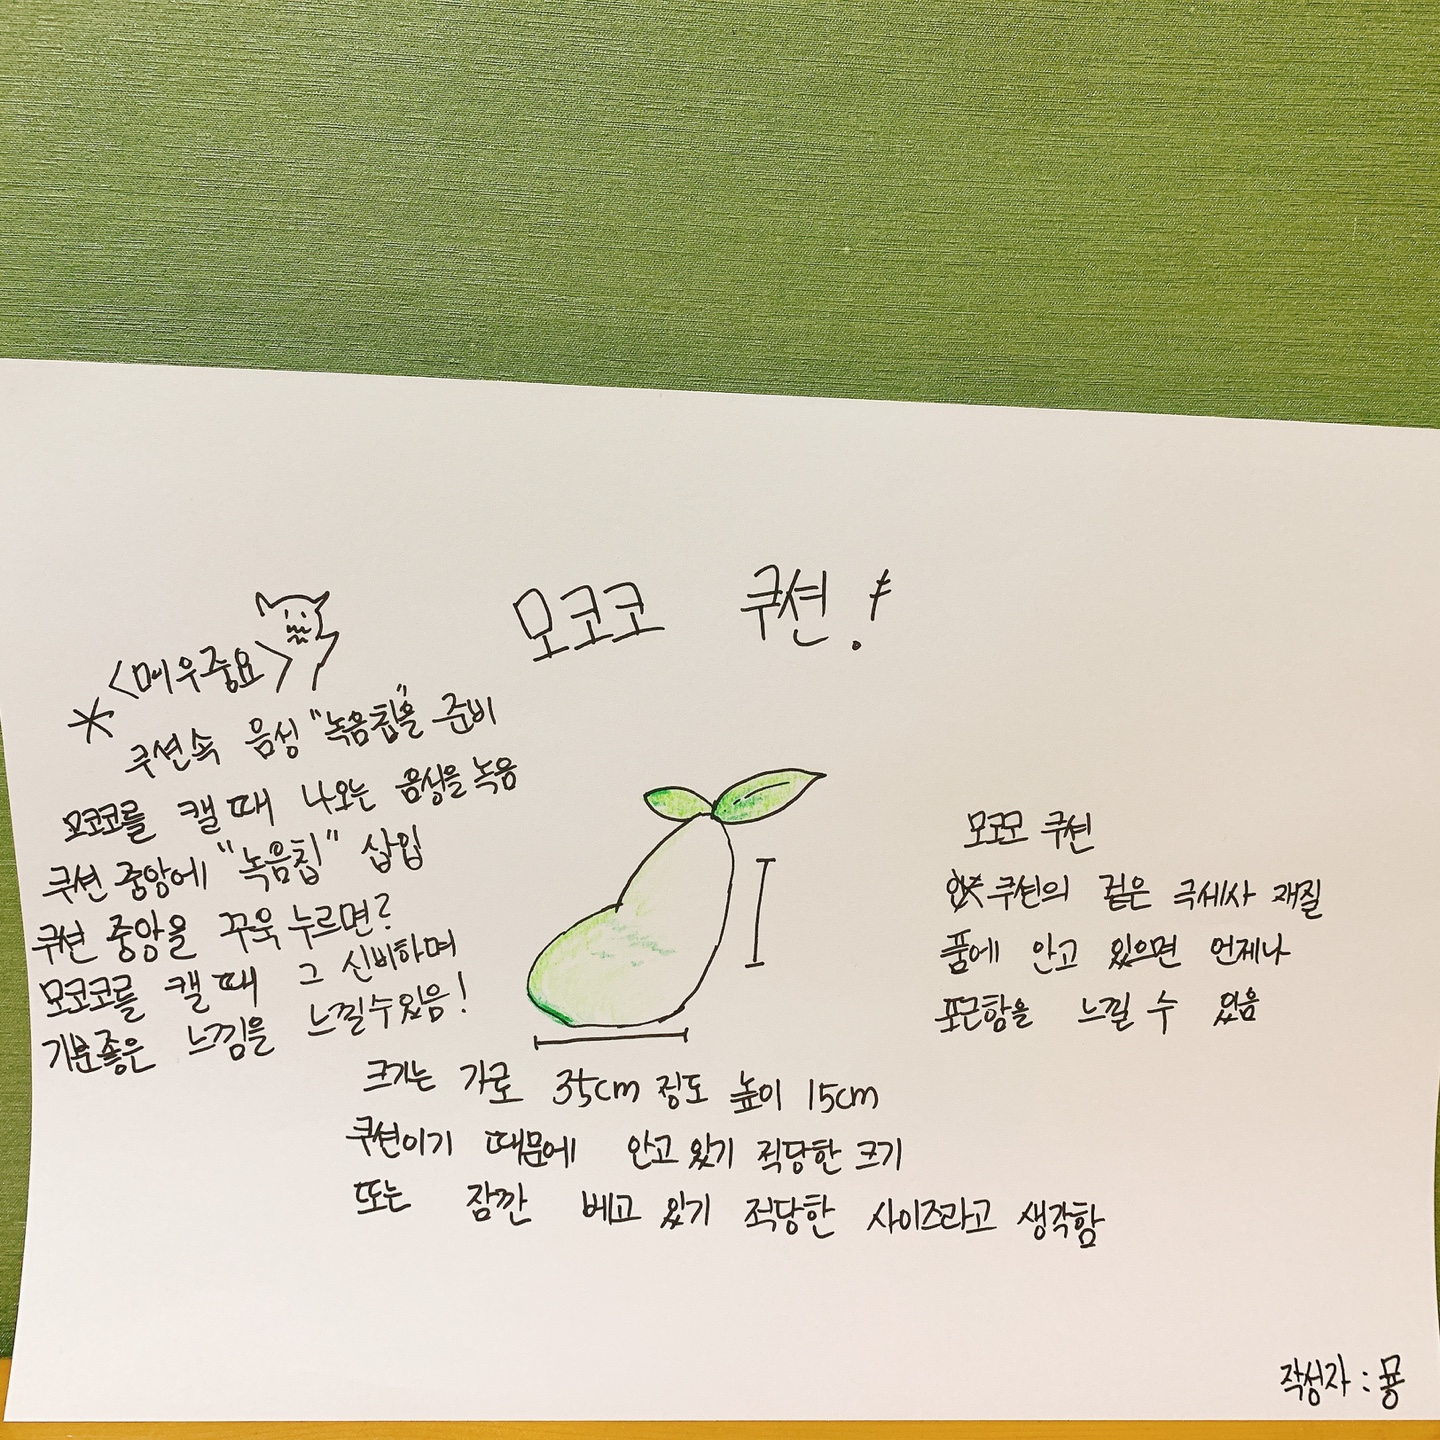 모코코 쿠션!
<매우중요>
* 쿠션속 음성 "녹음칩"을 준비
모코코를 캘 때 나오는 음성을 녹음
쿠션 중앙에 "녹음칩" 삽입
쿠션 중앙을 꾸욱 누르면?
모코코를 캘 때 그 신비하며
기분좋은 느낌을 느낄수있음!
모코모 쿠션
쿠션의 겉은 극세사 재질
품에 안고 있으면 언제나
포근함을 느낄 수 있음
크기는 가로 35cm 정도 높이 15cm
쿠션이기 때문에 안고 있기 적당한 크기
또는 잠깐 베고 있기 적당한 사이즈라고 생각함
작성자 : 묭